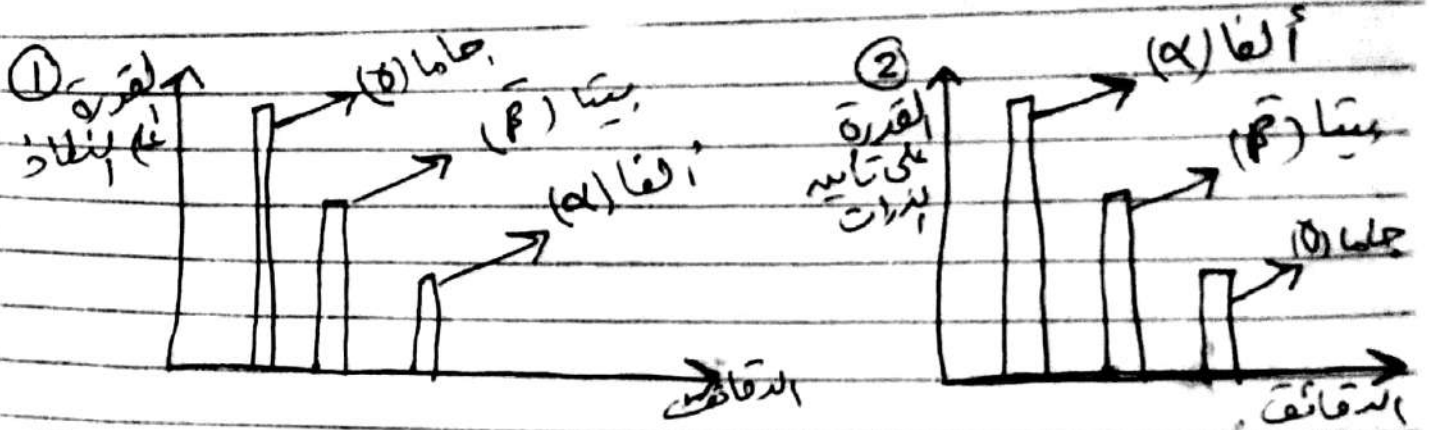 ①
القدرة
على النفاذ
جاما (γ)
بيتا (β⁻)
ألفا (α)
الدقائق
②
القدرة
على تأيين
الذرات
ألفا (α)
بيتا (β⁻)
جاما (γ)
الدقائق